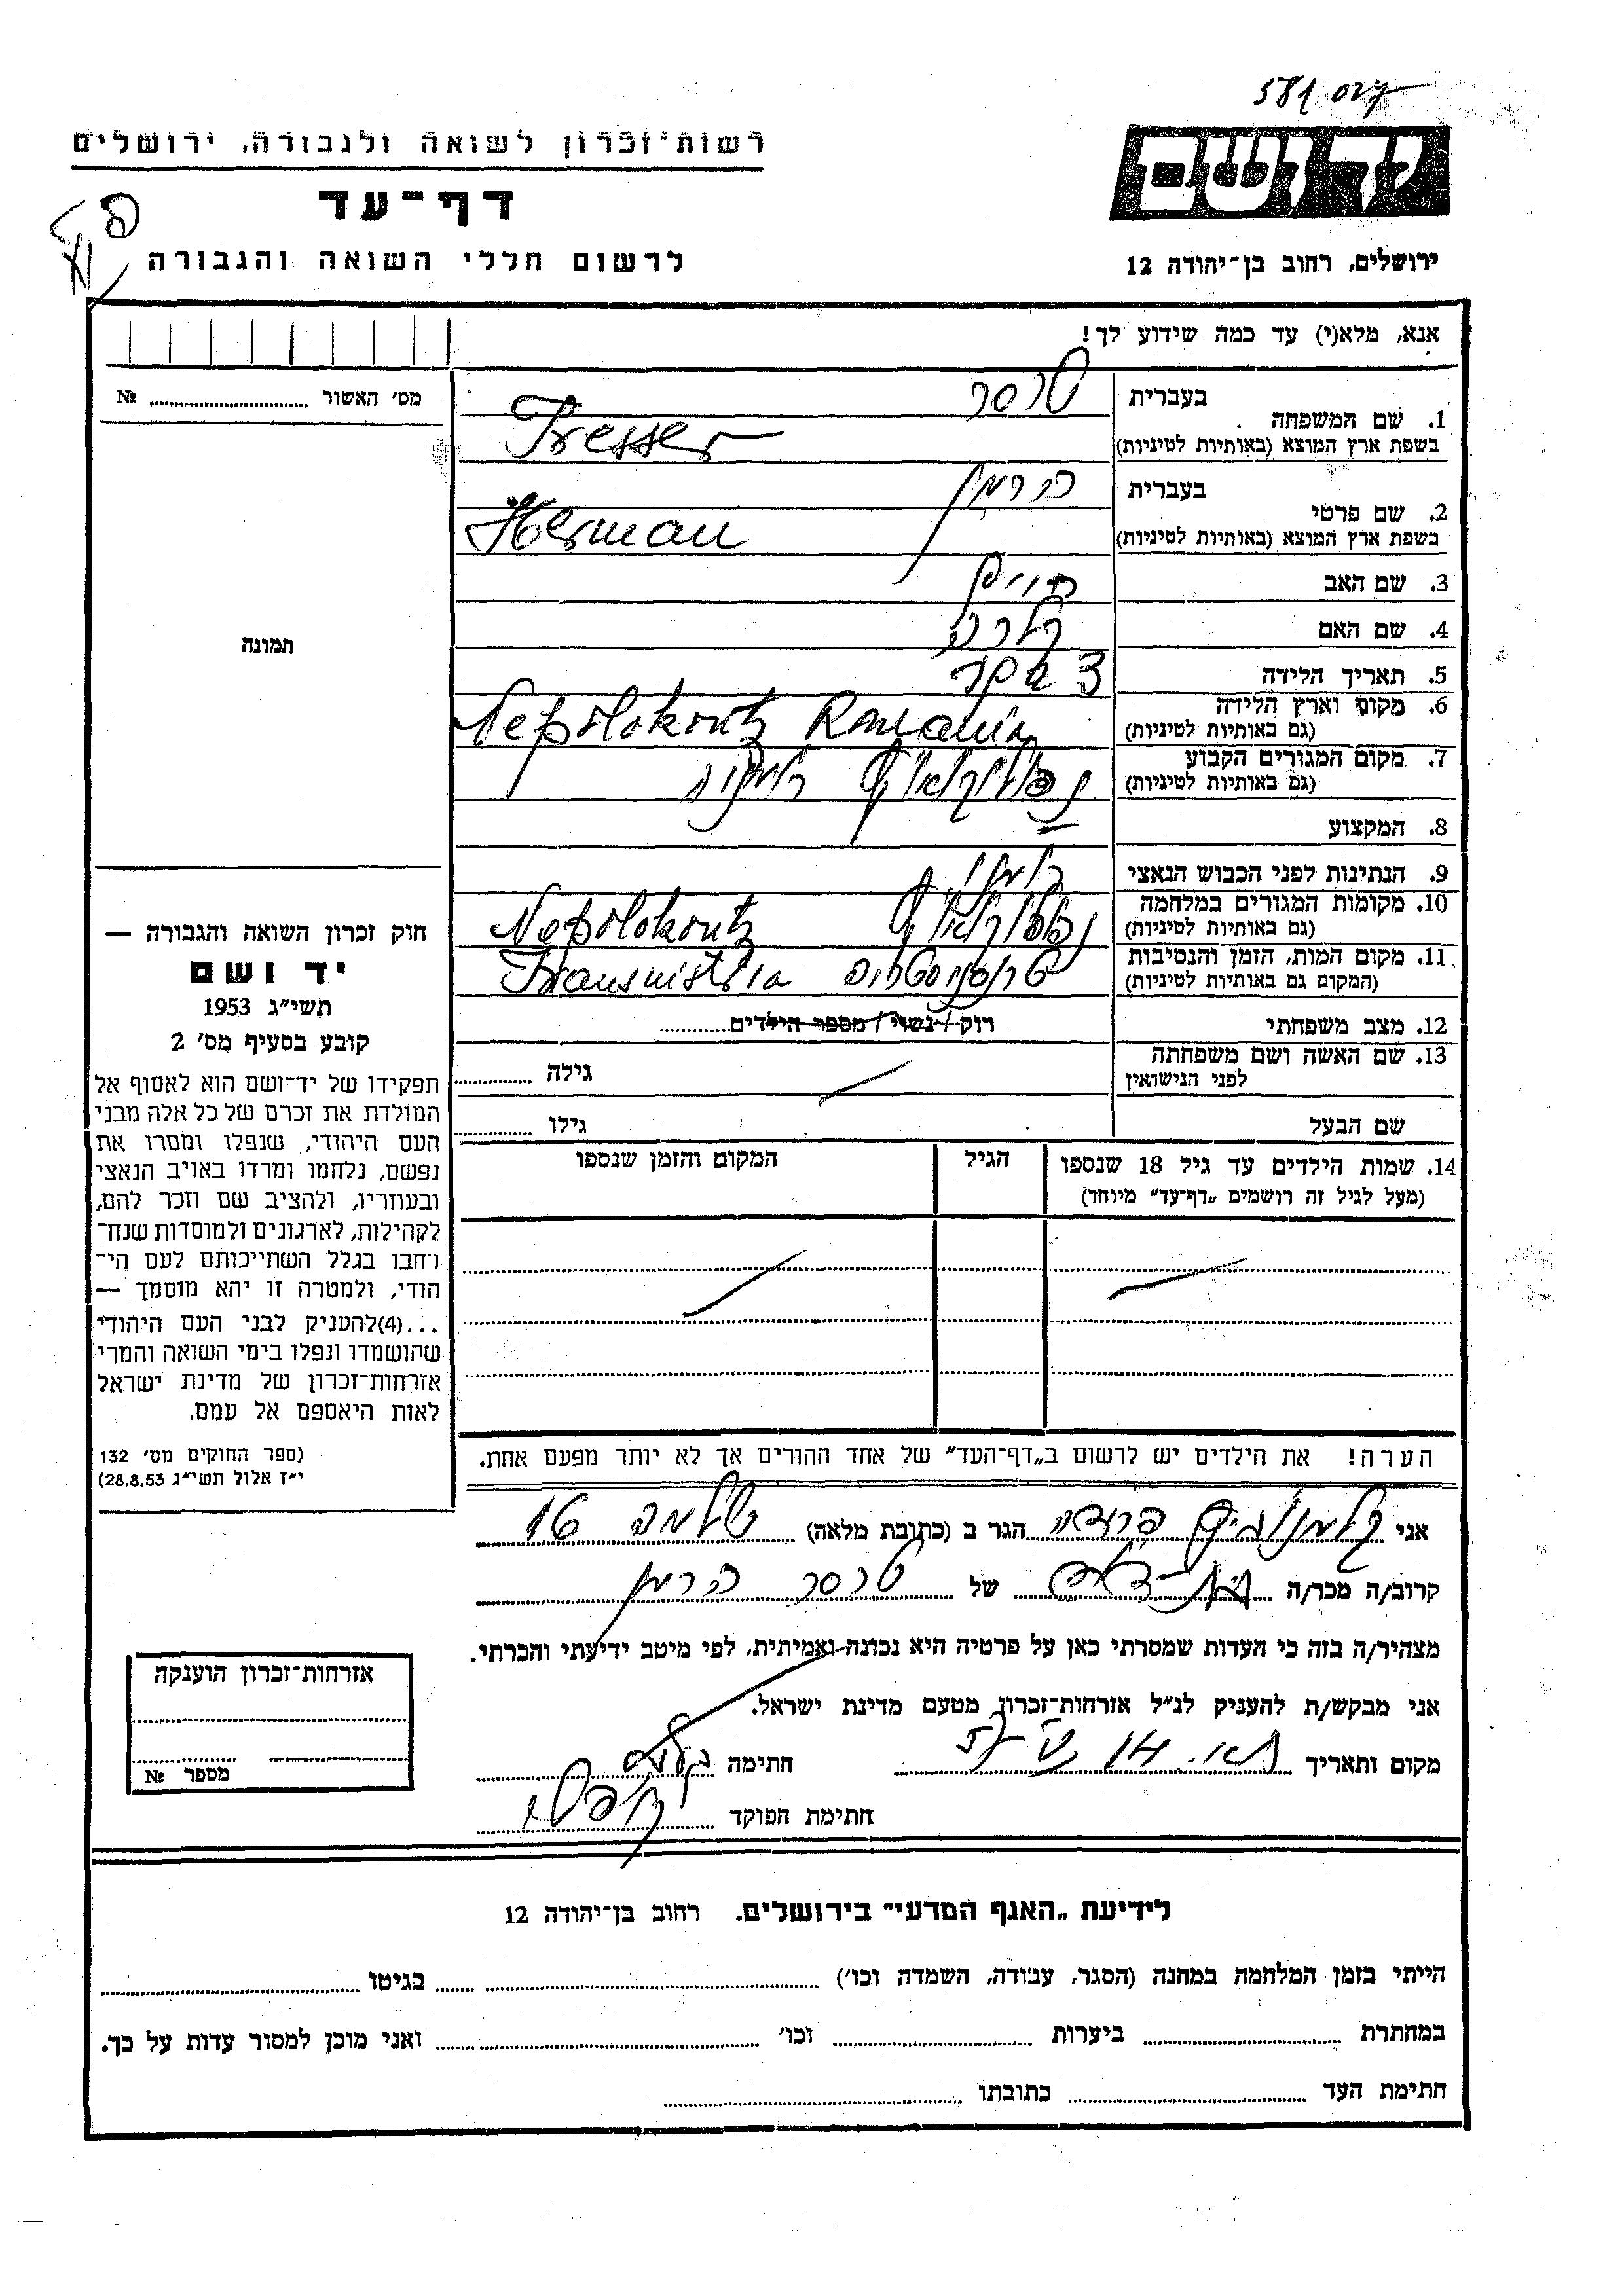 581
רשות־זכרון לשואה ולגבורה, ירושלים
יד ושם
דף־עד
לרשום חללי השואה והגבורה
ירושלים, רחוב בן־יהודה 12
אנא, מלא(י) עד כמה שידוע לך!
מס׳ האשור № 
תמונה
1. שם המשפחה
בעברית טרסר
בשפת ארץ המוצא (באותיות לטיניות) Tresser
2. שם פרטי
בעברית הרמן
בשפת ארץ המוצא (באותיות לטיניות) Herman
3. שם האב חיים
4. שם האם קלרה
5. תאריך הלידה
6. מקום וארץ הלידה (גם באותיות לטיניות) Nepolokoutz Romania
7. מקום המגורים הקבוע (גם באותיות לטיניות) נפולוקאוץ רומניה
8. המקצוע
9. הנתינות לפני הכבוש הנאצי רומני
10. מקומות המגורים במלחמה (גם באותיות לטיניות) נפולוקאוץ Nepolokoutz
11. מקום המות, הזמן והנסיבות (המקום גם באותיות לטיניות) טרנסניסטריה Transnistria
12. מצב משפחתי רוק/נשוי/מספר הילדים
13. שם האשה ושם משפחתה לפני הנישואין גילה
שם הבעל גילו
14. שמות הילדים עד גיל 18 שנספו הגיל המקום והזמן שנספו
(מעל לגיל זה רושמים „דף־עד״ מיוחד)
חוק זכרון השואה והגבורה —
יד ושם
תשי״ג 1953
קובע בסעיף מס׳ 2
תפקידו של יד־ושם הוא לאסוף אל
המולדת את זכרם של כל אלה מבני
העם היהודי, שנפלו ומסרו את
נפשם, נלחמו ומרדו באויב הנאצי
ובעוזריו, ולהציב שם וזכר להם,
לקהילות, לארגונים ולמוסדות שנח־
רחבו בגלל השתייכותם לעם הי־
הודי, ולמטרה זו יהא מוסמך —
...(4)להעניק לבני העם היהודי
שהושמדו ונפלו בימי השואה והמרי
אזרחות־זכרון של מדינת ישראל
לאות היאספם אל עמם.
(ספר החוקים מס׳ 132
י״ז אלול תשי״ג 28.8.53)
הערה! את הילדים יש לרשום ב„דף־העד״ של אחד ההורים אך לא יותר מפעם אחת.
אני פרידה הגר ב (כתובת מלאה) שלמה 16
קרוב/ה מכר/ה בת־דודה של טרסר הרמן
מצהיר/ה בזה כי העדות שמסרתי כאן על פרטיה היא נכונה ואמיתית, לפי מיטב ידיעתי והכרתי.
אני מבקש/ת להעניק לנ״ל אזרחות־זכרון מטעם מדינת ישראל.
מקום ותאריך חתימה
חתימת הפוקד
אזרחות־זכרון הוענקה
מספר №
לידיעת „האגף המדעי״ בירושלים. רחוב בן־יהודה 12
הייתי בזמן המלחמה במחנה (הסגר, עבודה, השמדה וכו׳) בגיטו
במחתרת ביערות וכו׳ ואני מוכן למסור עדות על כך.
חתימת העד כתובתו